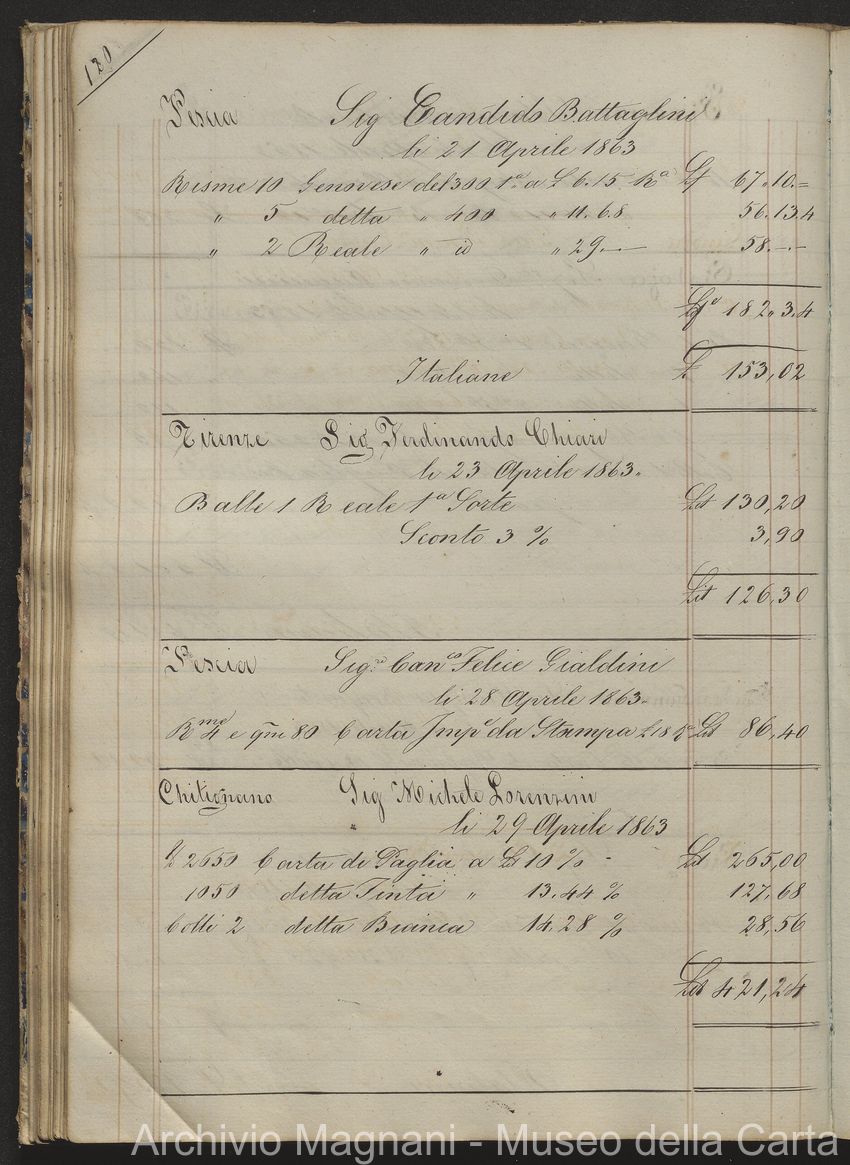 120
Pescia Sig Candido Battaglini
li 21 Aprile 1863
Risme 10 Genovese del 300 1a a £ 6.15 Ra Lf 67"10.=
" 5 detta " 400 " 11.6.8 56.13.4
" 2 Reale " id " 29.— 58.—.—
Lfe 182"3.4
Italiane L 153,02
Firenze Sig Ferdinando Chiari
li 23 Aprile 1863.
Balle 1 Reale 1a Sorte Lit 130,20
Sconto 3 % 3,90
Lit 126,30
Pescia Sigre Canco Felice Gialdini
li 28 Aprile 1863.
Rme 4 e qni 80 Carta Imple da Stampa £ 18 Ra Lit 86,40
Chitignano Sig Michele Lorenzini
li 29 Aprile 1863
2650 Carta di Paglia a Lit 10 % Lit 265,00
1050 detta Tinta " 13.44 % 127,68
Colli 2 detta Bianca 14.28 % 28,56
Lit 421,24
Archivio Magnani - Museo della Carta